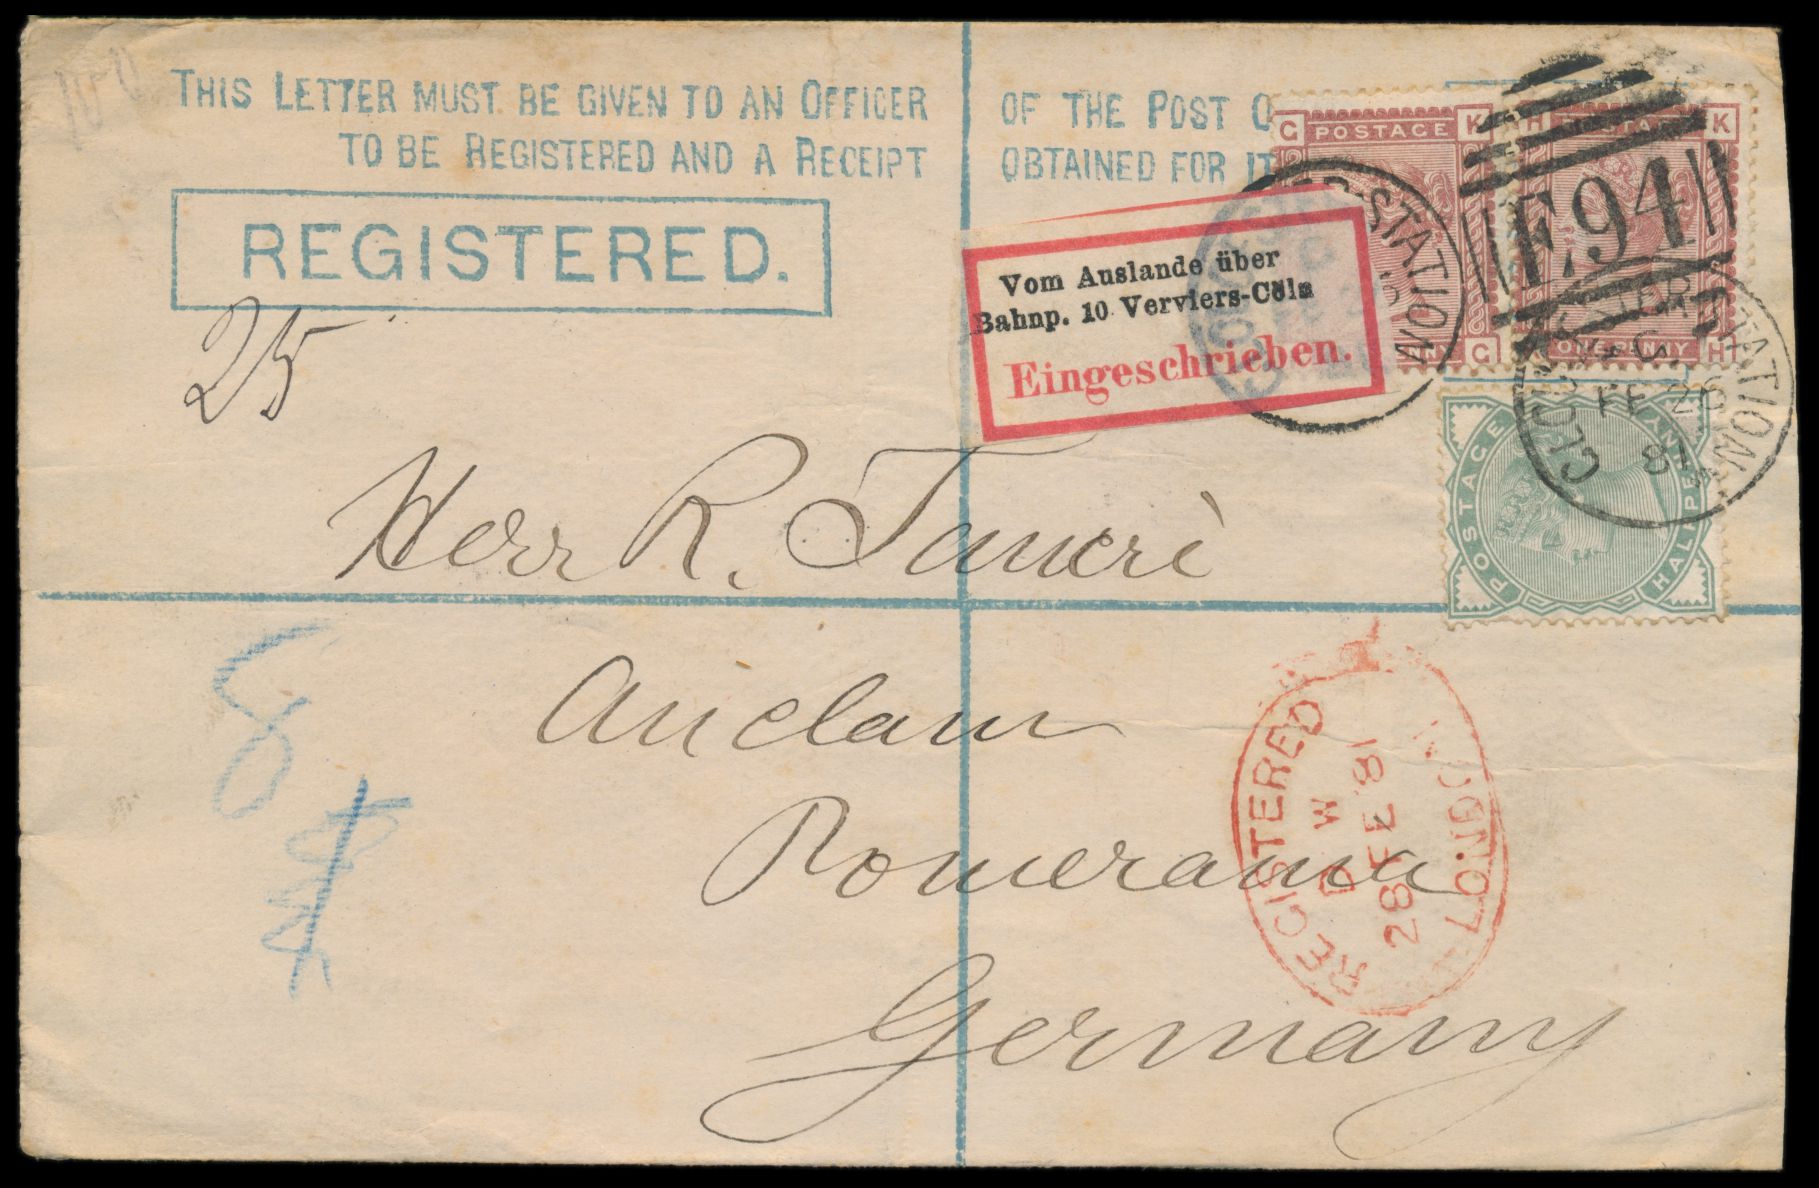 THIS LETTER MUST BE GIVEN TO AN OFFICER OF THE POST O
TO BE REGISTERED AND A RECEIPT OBTAINED FOR IT
REGISTERED.
25
G POSTAGE K
H K
E94
Vom Auslande über
Bahnp. 10 Verviers-Cöln
Eingeschrieben.
STATION
G
ONE PENNY H
STATION
C
FE 26
81
POSTAGE
HALFPENNY
Herr R. Tancré
Anclam
Pomerania
Germany
REGISTERED
D W
28 FE 81
LONDON
8